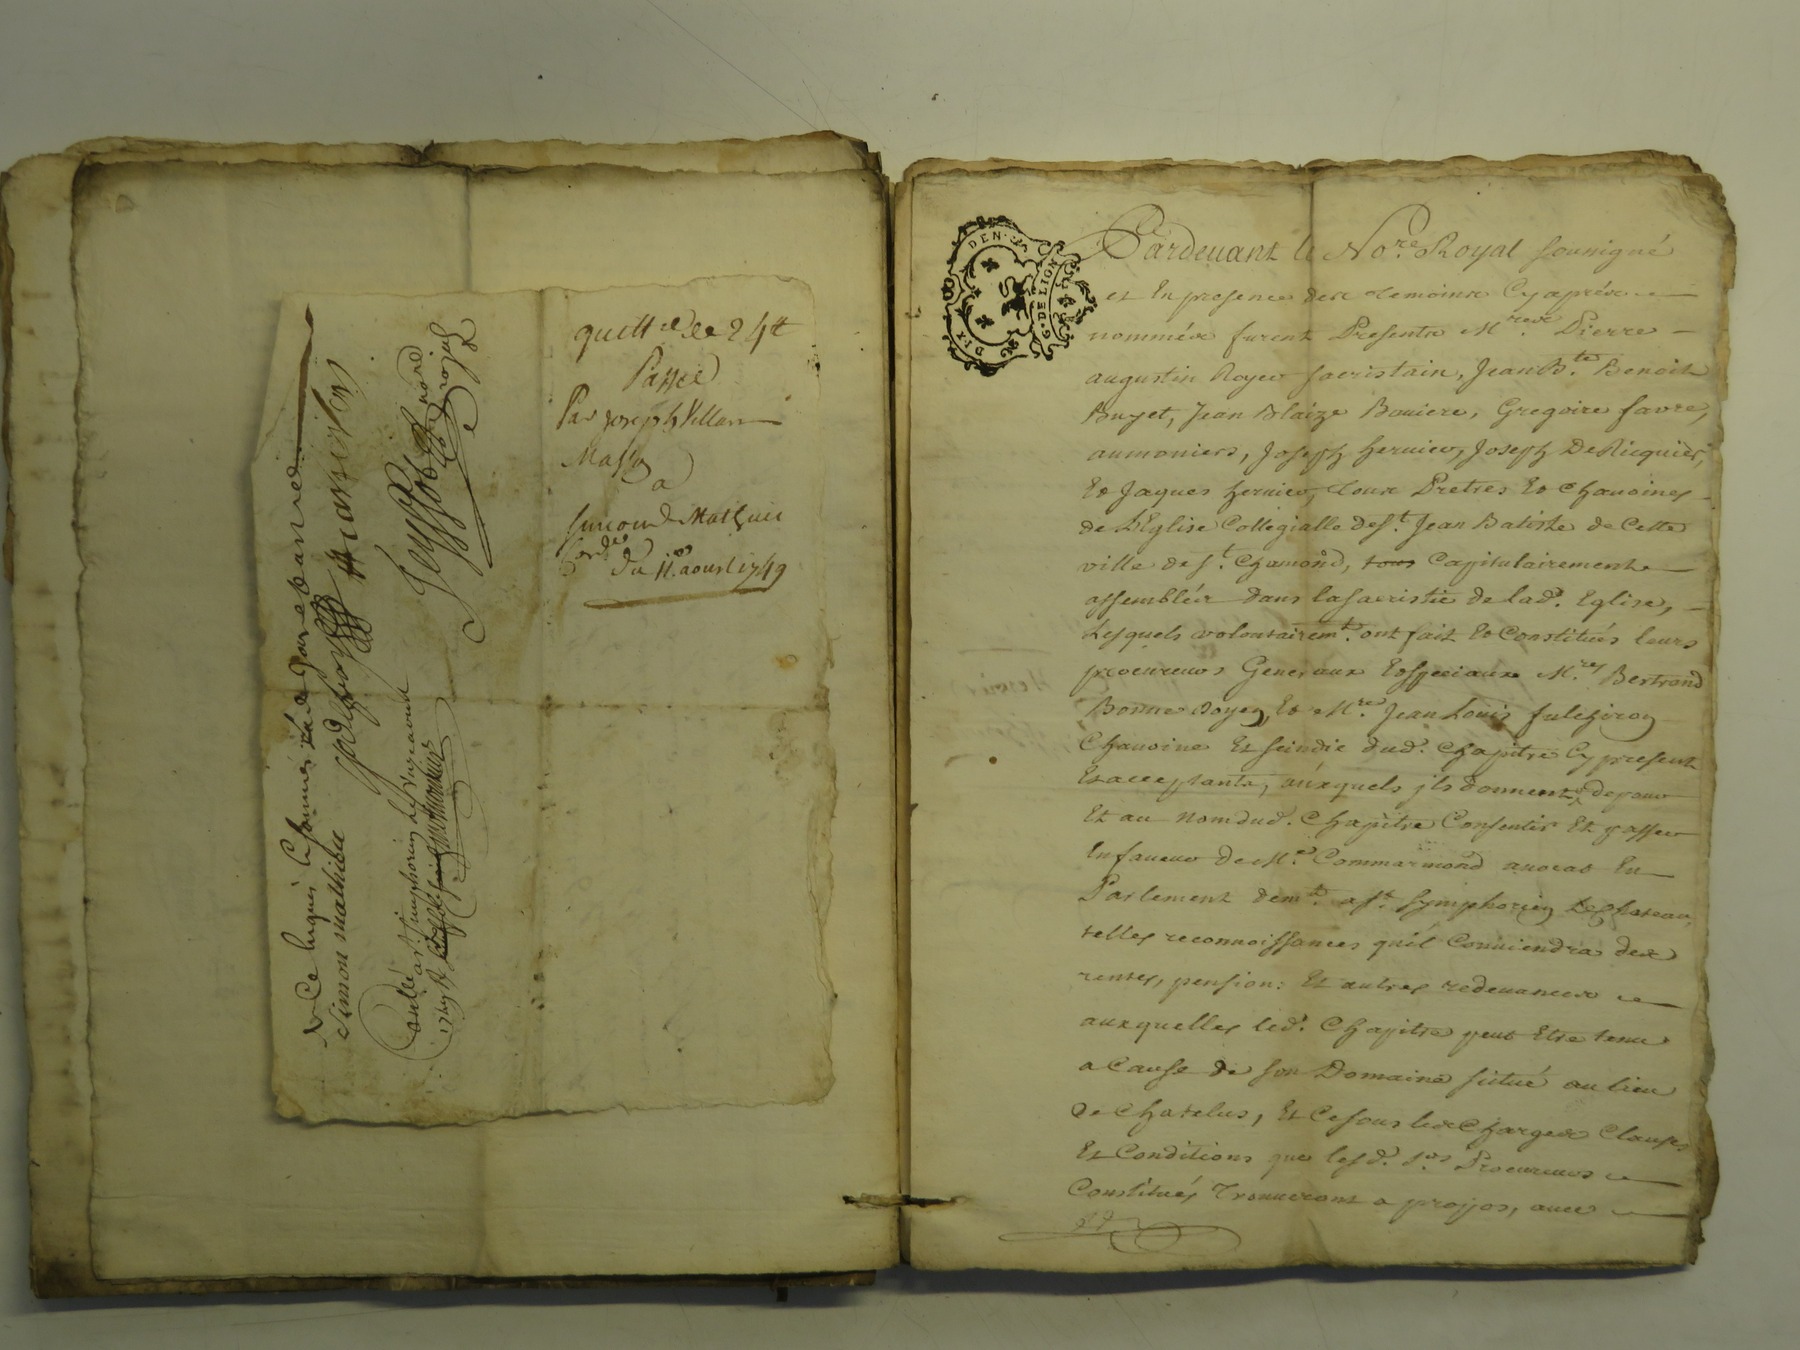 quitt.ce de 24lt
Passée
Par Joseph Villard
Masson
a
Simon Mathieu
Cord.er
du 11.e aoust 1749
de ce enquis le sommés
Simon mathieu
Conllé a s.t simphorien le
DIX DEN.
G. DE LION
Pardevant le No.re Royal sousigné
et En presence des temoins Cyaprés
nommés furent Presents M.res Pierre
augustin Royer sacristain, Jean B.te Benoit
Buyet, Jean Blaize Bouiere, Gregoire favre,
aumoniers, Joseph hervier, Joseph De Ricquier,
Et Jaques hervier, tous Pretres Et Chanoines
de L'Eglise Collegialle de S.t Jean Batiste de Cette
ville de S.t Chamond, tous Capitulairement
assemblés dans la sacristie de lad. Eglise,
Lesquels volontairem.t ont fait Et Constitués leurs
procureurs Generaux Et speciaux M.res Bertrand
Bonne doyen, Et M.re Jean Louis fulchiron
Chanoine Et scindic dud. Chapitre Cy present
Et acceptants, auxquels jls donnent de pour
Et au nom dud. Chapitre Consentir Et passer
En faveur de M.e Commarmond avocat En
Parlement dem.t a S.t Symphorien Le Chateau,
telles reconnoissances qu'il Conviendra des
rentes, pensions Et autres redevances
auxquelles led. Chapitre peut Etre tenu
a Cause de son Domaine situé au lieu
de Chatelus, Et Ce sous les Charges Clauses
Et Conditions que lesd. s.rs Procureurs
Constitués trouveront a propos, avec